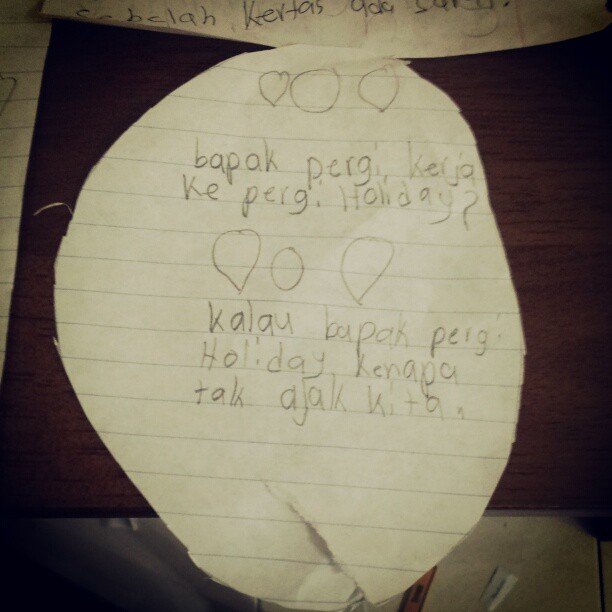 sebelah kertas ada
bapak pergi kerja
ke pergi Holiday?
kalau bapak pergi
Holiday, kenapa
tak ajak kita.